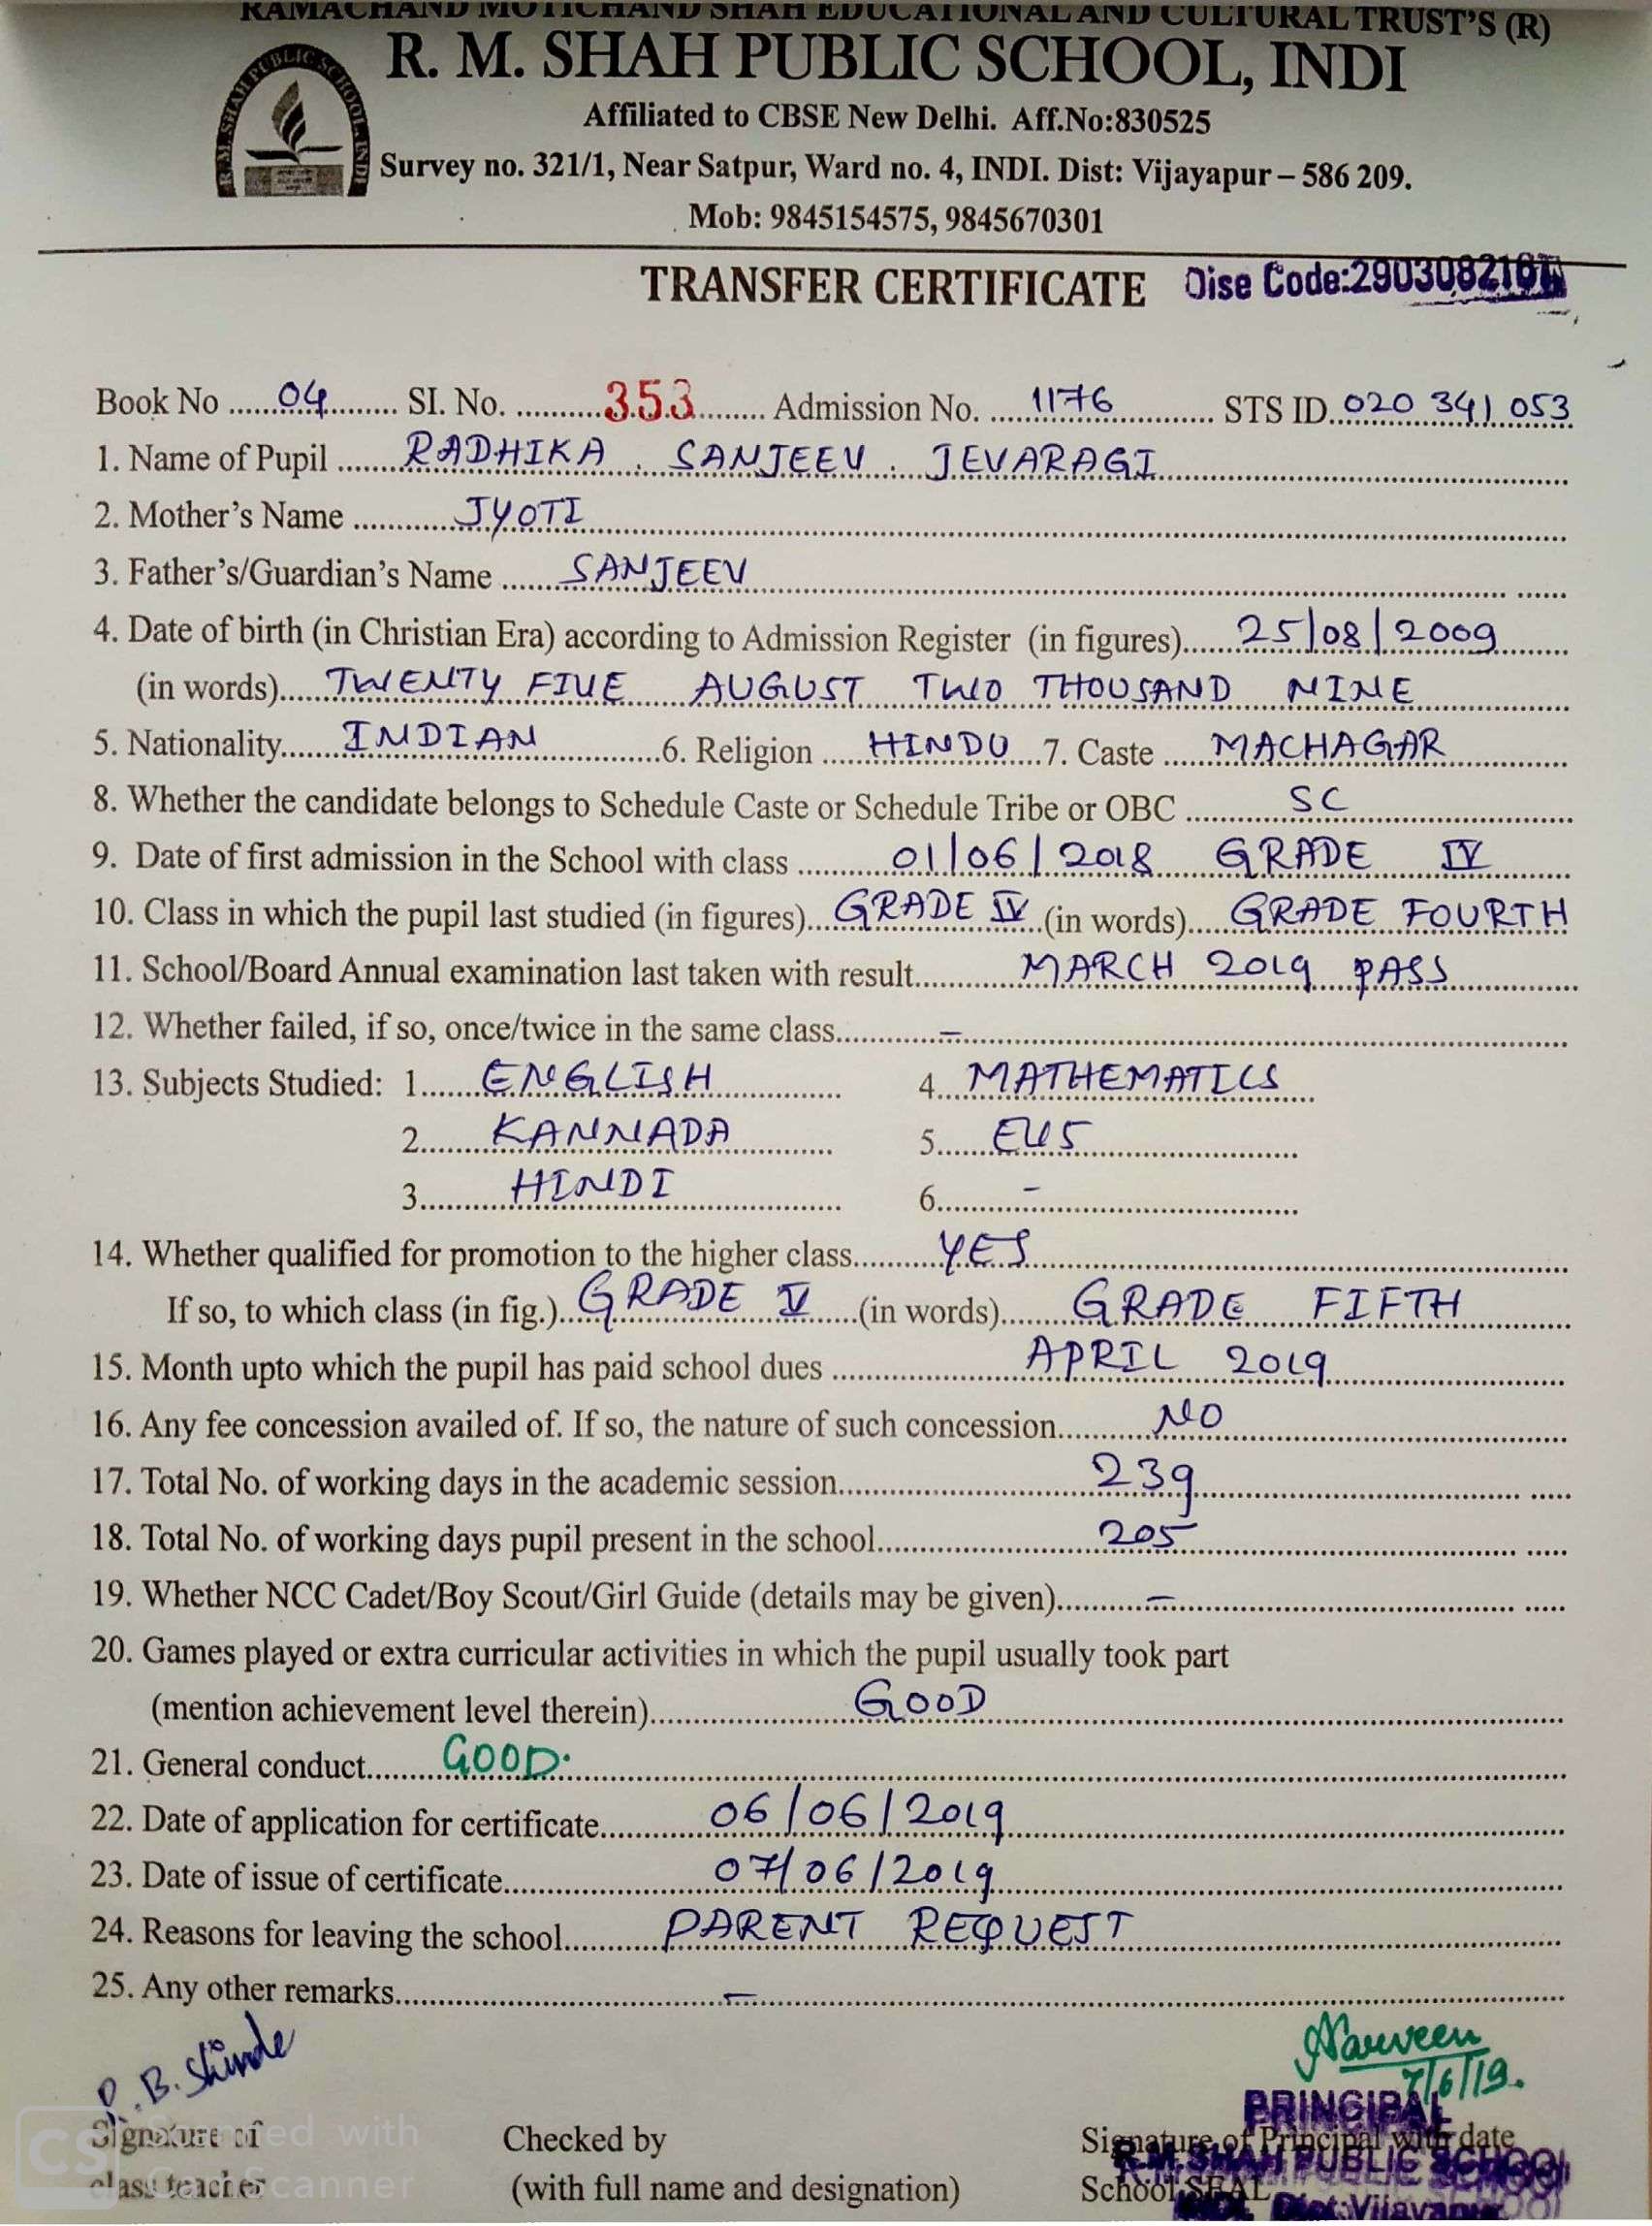 RAMACHAND MOTICHAND SHAH EDUCATIONAL AND CULTURAL TRUST'S (R)
R. M. SHAH PUBLIC SCHOOL, INDI
R.M. SHAH PUBLIC SCHOOL, INDI
Affiliated to CBSE New Delhi. Aff.No:830525
Survey no. 321/1, Near Satpur, Ward no. 4, INDI. Dist: Vijayapur – 586 209.
Mob: 9845154575, 9845670301
TRANSFER CERTIFICATE Dise Code:
Book No ......04......... SI. No. ...........353......... Admission No. .....1176............ STS ID..020 341 053
1. Name of Pupil .......RADHIKA . SANJEEV . JEVARAGI
2. Mother's Name ............JYOTI
3. Father's/Guardian's Name .......SANJEEV
4. Date of birth (in Christian Era) according to Admission Register (in figures)......25/08/2009
(in words).....TWENTY FIVE AUGUST TWO THOUSAND NINE
5. Nationality.......INDIAN............6. Religion .....HINDU....7. Caste ......MACHAGAR
8. Whether the candidate belongs to Schedule Caste or Schedule Tribe or OBC ............SC
9. Date of first admission in the School with class ..........01/06/2018 GRADE IV
10. Class in which the pupil last studied (in figures)...GRADE IV (in words).....GRADE FOURTH
11. School/Board Annual examination last taken with result............MARCH 2019 PASS
12. Whether failed, if so, once/twice in the same class.............–
13. Subjects Studied: 1.......ENGLISH............ 4...MATHEMATICS
2........KANNADA............ 5.......EVS
3.........HINDI............ 6..........-
14. Whether qualified for promotion to the higher class...........YES
If so, to which class (in fig.)..GRADE V......(in words).........GRADE FIFTH
15. Month upto which the pupil has paid school dues .................APRIL 2019
16. Any fee concession availed of. If so, the nature of such concession...........NO
17. Total No. of working days in the academic session......................239
18. Total No. of working days pupil present in the school....................205
19. Whether NCC Cadet/Boy Scout/Girl Guide (details may be given)..........–
20. Games played or extra curricular activities in which the pupil usually took part
(mention achievement level therein)..................GOOD
21. General conduct.........GOOD.
22. Date of application for certificate..........06/06/2019
23. Date of issue of certificate....................07/06/2019
24. Reasons for leaving the school..........PARENT REQUEST
25. Any other remarks............................–
B. Shinde
7/6/19.
PRINCIPAL
Signature of Checked by Signature of Principal with date
R.M.SHAH PUBLIC SCHOOL
class teacher (with full name and designation) School SEAL
Dist:Vijayapur
CS Scanned with
CamScanner